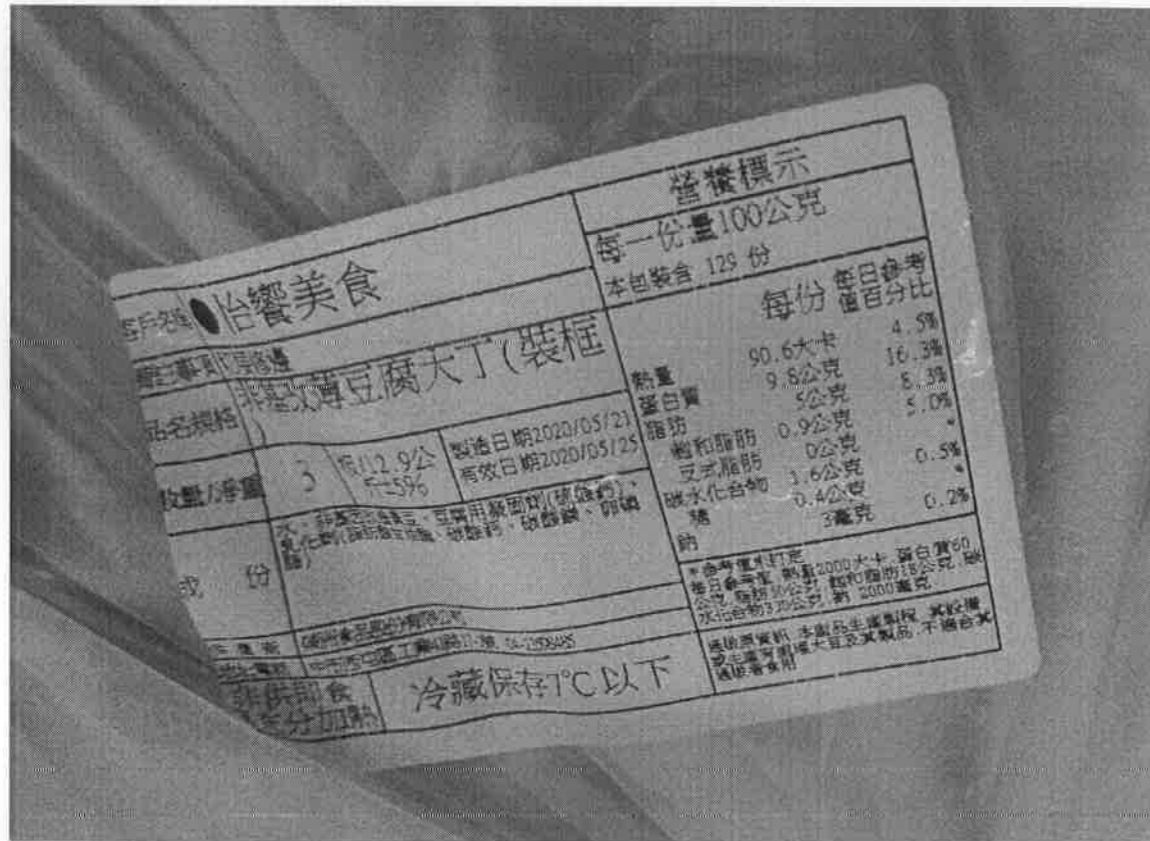 客戶名稱 怡饗美食
品名規格 非基改薄豆腐大丁(裝框
)
數量/淨重 3 板/12.9公
斤±5%
製造日期2020/05/21
有效日期2020/05/25
成 份
水、非基因改造黃豆、豆腐用凝固劑(硫酸鈣)、
乳化劑(脂肪酸甘油酯、碳酸鈣、碳酸鎂、卵磷
脂)
非供即食
冷藏保存7℃以下
營養標示
每一份量100公克
本包裝含 129 份
每份 每日參考
值百分比
熱量 90.6大卡 4.5%
蛋白質 9.8公克 16.3%
脂肪 5公克 8.3%
飽和脂肪 0.9公克 5.0%
反式脂肪 0公克 *
碳水化合物 1.6公克 0.5%
糖 0.4公克 *
鈉 3毫克 0.2%
*參考值未訂定
每日參考值 熱量2000大卡 蛋白質60
公克 脂肪60公克 飽和脂肪18公克 碳
水化合物320公克 鈉 2000毫克
過敏原資訊 本產品生產製程,其設備